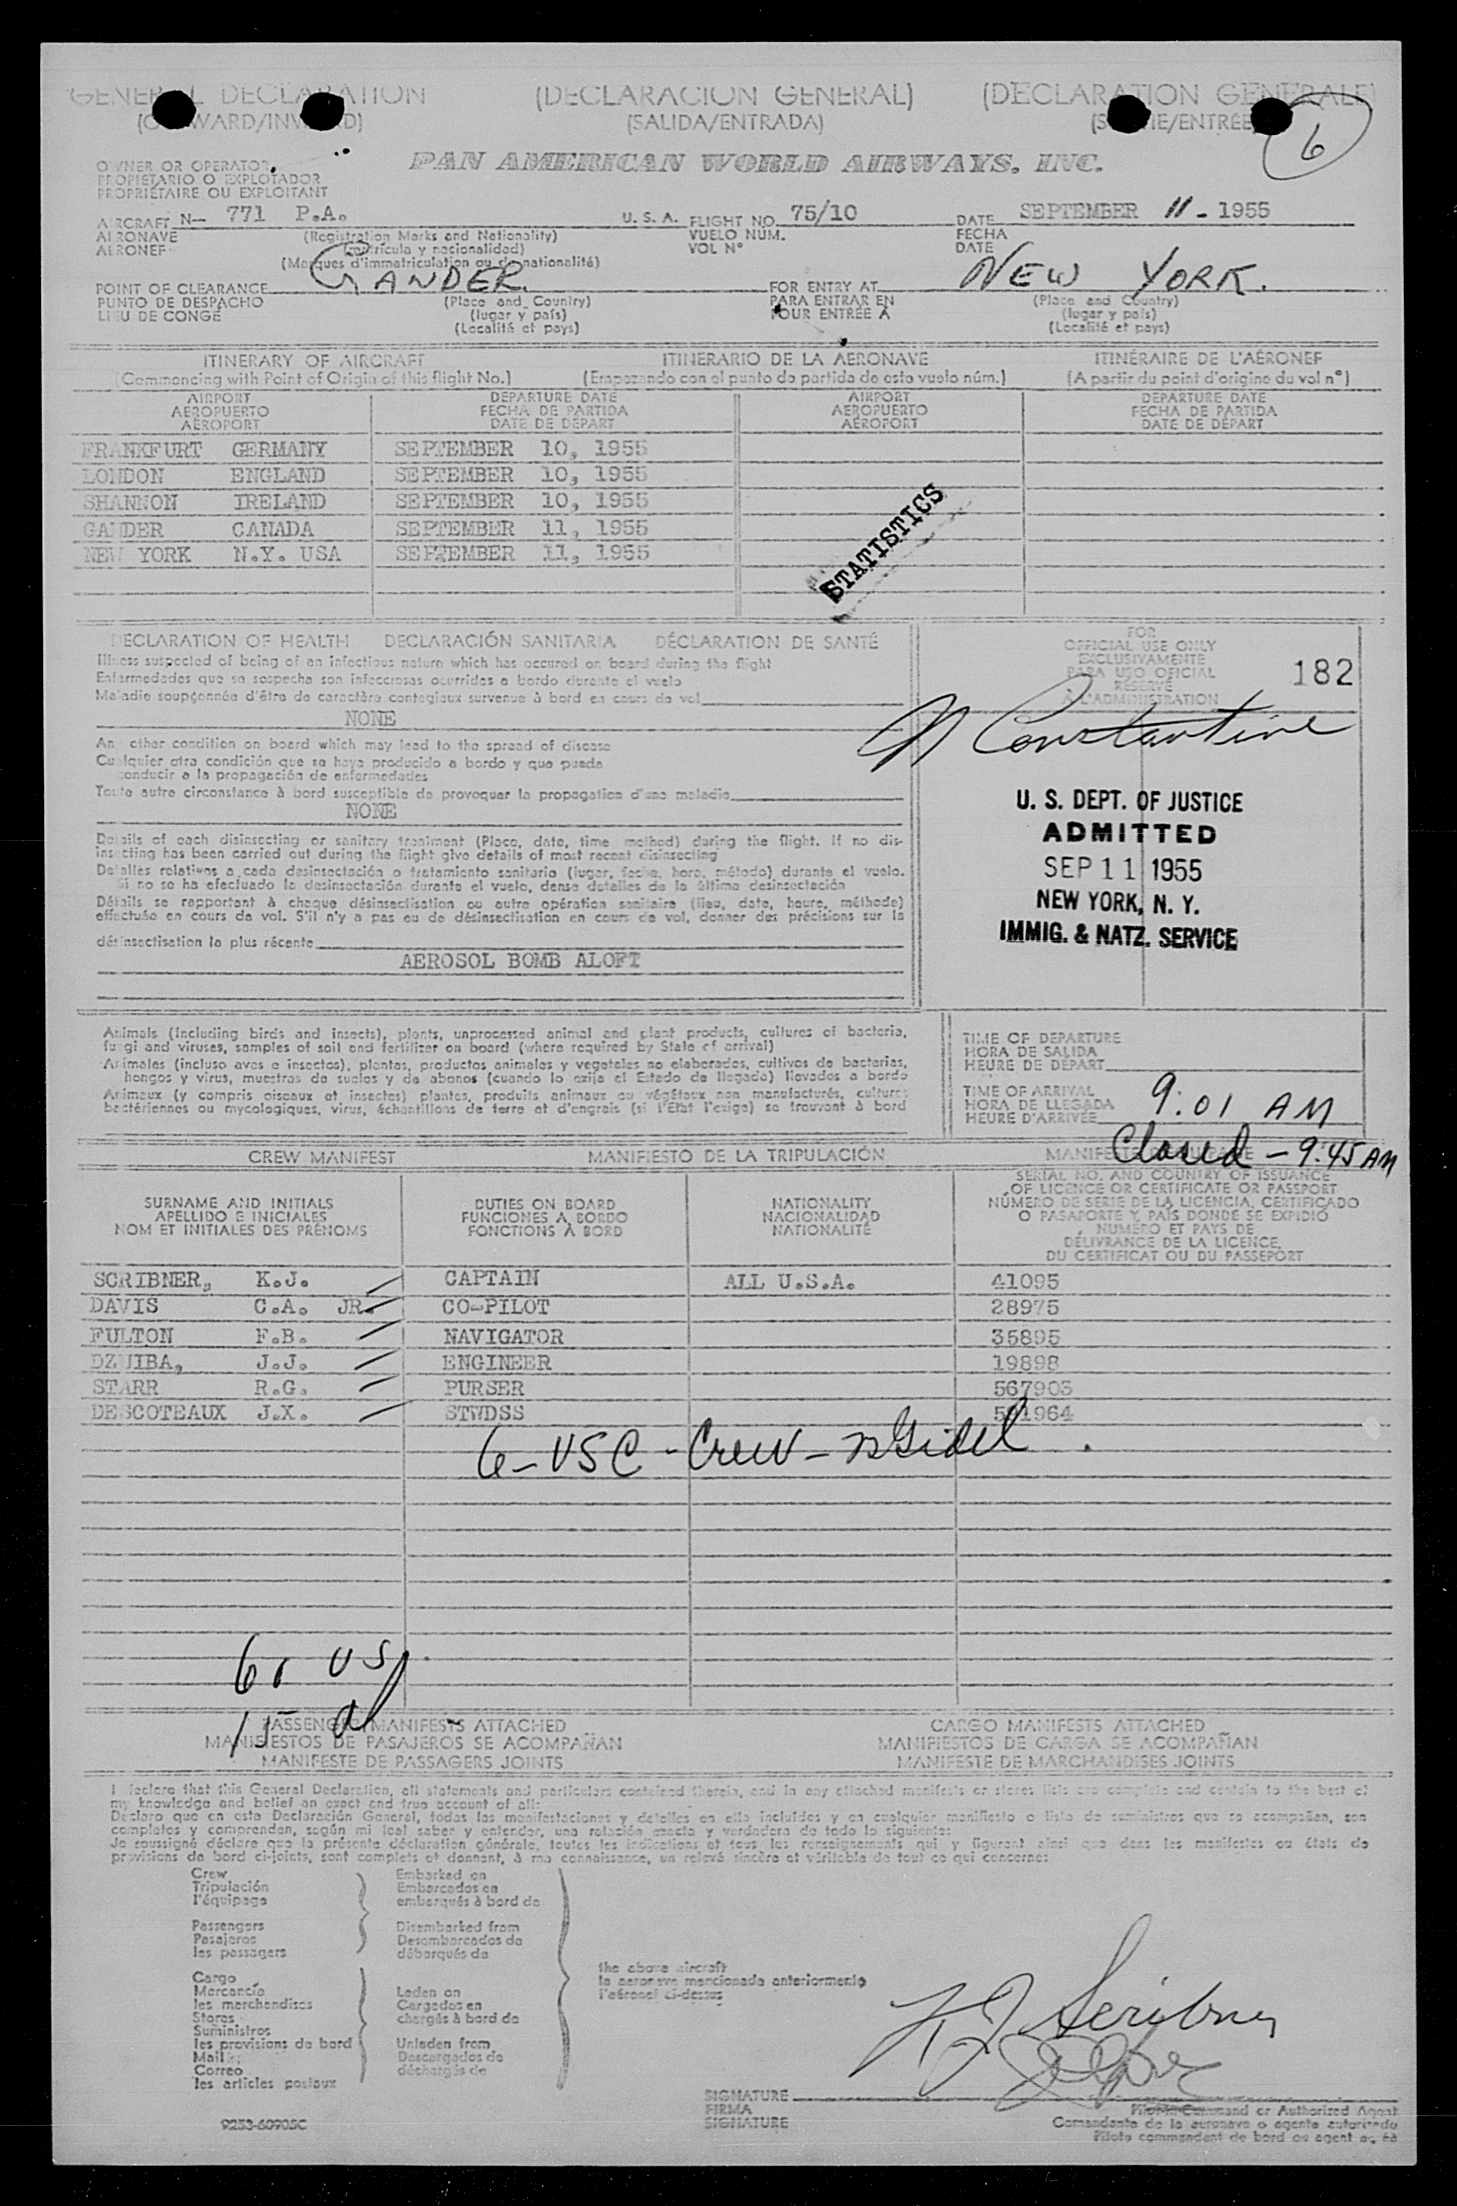 GENERAL DECLARATION (DECLARACION GENERAL) (DECLARATION GENERALE)
(OUTWARD/INWARD) (SALIDA/ENTRADA) (SORTIE/ENTRÉE)
6
OWNER OR OPERATOR
PROPIETARIO O EXPLOTADOR
PROPRIÉTAIRE OU EXPLOITANT
PAN AMERICAN WORLD AIRWAYS, INC.
AIRCRAFT N- 771 P.A. U. S. A. FLIGHT NO. 75/10 DATE SEPTEMBER 11 - 1955
AERONAVE (Registration Marks and Nationality) VUELO NUM. FECHA
AERONEF (Matrícula y nacionalidad) VOL N° DATE
(Marques d'immatriculation ou de nationalité)
POINT OF CLEARANCE GANDER. FOR ENTRY AT NEW YORK.
PUNTO DE DESPACHO (Place and Country) PARA ENTRAR EN (Place and Country)
LIEU DE CONGÉ (lugar y país) POUR ENTRÉE A (lugar y país)
(Localité et pays) (Localité et pays)
ITINERARY OF AIRCRAFT ITINERARIO DE LA AERONAVE ITINÉRAIRE DE L'AÉRONEF
(Commencing with Point of Origin of this flight No.) (Empezando con el punto de partida de este vuelo núm.) (A partir du point d'origine du vol n°)
AIRPORT DEPARTURE DATE AIRPORT DEPARTURE DATE
AEROPUERTO FECHA DE PARTIDA AEROPUERTO FECHA DE PARTIDA
AÉROPORT DATE DE DÉPART AÉROPORT DATE DE DÉPART
FRANKFURT GERMANY SEPTEMBER 10, 1955
LONDON ENGLAND SEPTEMBER 10, 1955
SHANNON IRELAND SEPTEMBER 10, 1955
GANDER CANADA SEPTEMBER 11, 1955
NEW YORK N.Y. USA SEPTEMBER 11, 1955
STATISTICS
DECLARATION OF HEALTH DECLARACIÓN SANITARIA DÉCLARATION DE SANTÉ
Illness suspected of being of an infectious nature which has occured on board during the flight
Enfermedades que se sospecha son infecciosas ocurridas a bordo durante el vuelo
Maladie soupçonnée d'être de caractère contagieux survenue à bord en cours de vol
NONE
Any other condition on board which may lead to the spread of disease
Cualquier otra condición que se haya producido a bordo y que pueda
conducir a la propagación de enfermedades
Toute autre circonstance à bord susceptible de provoquer la propagation d'une maladie
NONE
Details of each disinsecting or sanitary treatment (Place, date, time method) during the flight. If no dis-
insecting has been carried out during the flight give details of most recent disinsecting
Detalles relativos a cada desinsectación o tratamiento sanitario (lugar, fecha, hora, método) durante el vuelo.
Si no se ha efectuado la desinsectación durante el vuelo, dense detalles de la última desinsectación
Détails se rapportant à chaque désinsectisation ou autre opération sanitaire (lieu, date, heure, méthode)
effectuée en cours de vol. S'il n'y a pas eu de désinsectisation en cours de vol, donner des précisions sur la
désinsectisation la plus récente
AEROSOL BOMB ALOFT
FOR
OFFICIAL USE ONLY
EXCLUSIVAMENTE
PARA USO OFICIAL
RÉSERVÉ
À L'ADMINISTRATION
182
N Constantine
U. S. DEPT. OF JUSTICE
ADMITTED
SEP 11 1955
NEW YORK, N. Y.
IMMIG. & NATZ. SERVICE
Animals (including birds and insects), plants, unprocessed animal and plant products, cultures of bacteria,
fungi and viruses, samples of soil and fertilizer on board (where required by State of arrival)
Animales (incluso aves e insectos), plantas, productos animales y vegetales no elaborados, cultivos de bacterias,
hongos y virus, muestras de suelos y de abonos (cuando lo exija el Estado de llegada) llevados a bordo
Animaux (y compris oiseaux et insectes) plantes, produits animaux ou végétaux non manufacturés, cultures
bactériennes ou mycologiques, virus, échantillons de terre et d'engrais (si l'État l'exige) se trouvant à bord
TIME OF DEPARTURE
HORA DE SALIDA
HEURE DE DÉPART
TIME OF ARRIVAL
HORA DE LLEGADA
HEURE D'ARRIVÉE
9:01 AM
Closed - 9:45 AM
CREW MANIFEST MANIFIESTO DE LA TRIPULACIÓN
SURNAME AND INITIALS
APELLIDO E INICIALES
NOM ET INITIALES DES PRÉNOMS
DUTIES ON BOARD
FUNCIONES A BORDO
FONCTIONS À BORD
NATIONALITY
NACIONALIDAD
NATIONALITÉ
SERIAL NO. AND COUNTRY OF ISSUANCE
OF LICENCE OR CERTIFICATE OR PASSPORT
NÚMERO DE SERIE DE LA LICENCIA, CERTIFICADO
O PASAPORTE Y PAÍS DONDE SE EXPIDIÓ
NUMÉRO ET PAYS DE
DÉLIVRANCE DE LA LICENCE,
DU CERTIFICAT OU DU PASSEPORT
SCRIBNER, K.J. CAPTAIN ALL U.S.A. 41095
DAVIS C.A. JR. CO-PILOT 28975
FULTON F.B. NAVIGATOR 35895
DZUIBA, J.J. ENGINEER 19898
STARR R.G. PURSER 567903
DESCOTEAUX J.X. STWDSS
6 - USC - Crew -
US
15 al
PASSENGER MANIFESTS ATTACHED CARGO MANIFESTS ATTACHED
MANIFIESTOS DE PASAJEROS SE ACOMPAÑAN MANIFIESTOS DE CARGA SE ACOMPAÑAN
MANIFESTE DE PASSAGERS JOINTS MANIFESTE DE MARCHANDISES JOINTS
I declare that this General Declaration, all statements and particulars contained therein, and in any attached manifests or stores lists are complete and contain to the best of
my knowledge and belief an exact and true account of all:
Declaro que en esta Declaración General, todas las manifestaciones y detalles en ella incluídos y en cualquier manifiesto o lista de suministros que se acompañan, son
completos y comprenden, según mi leal saber y entender, una relación exacta y verdadera de todo lo siguiente:
Je soussigné déclare que la présente déclaration générale, toutes les indications et tous les renseignements qui y figurent ainsi que dans les manifestes ou états de
provisions de bord ci-joints, sont complets et donnent, à ma connaissance, un relevé sincère et véritable de tout ce qui concerne:
Crew Embarked on
Tripulación Embarcados en
l'équipage embarqués à bord de
Passengers Disembarked from
Pasajeros Desembarcados de
les passagers débarqués de
the above aircraft
la aeronave mencionada anteriormente
l'aéronef ci-dessus
Cargo
Mercancía Laden on
les marchandises Cargados en
Stores chargés à bord de
Suministros
les provisions de bord Unladen from
Mail Descargados de
Correo déchargés de
les articles postaux
K J Scribner
SIGNATURE
FIRMA
SIGNATURE
Pilot in Command or Authorized Agent
Comandante de la aeronave o agente autorizado
Pilote commandant de bord ou agent
9253-60905C